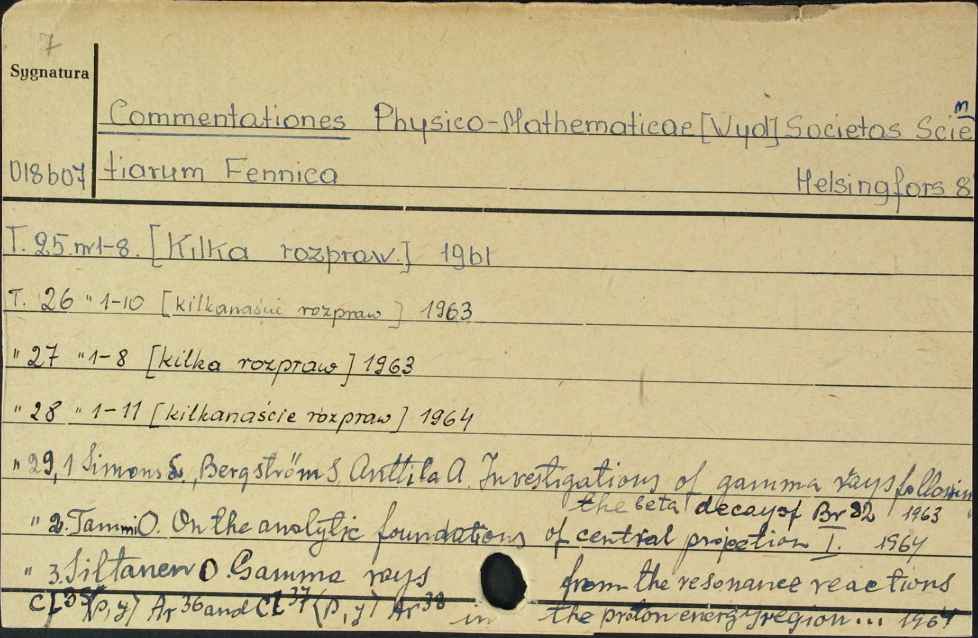 7
Sygnatura
D18b07
Commentationes Physico-Mathematicae [Wyd] Societas Scien
tiarum Fennica Helsingfors 8
T. 25. nr 1-8. [Kilka rozpraw.] 1961
T. 26 " 1-10 [kilkanaście rozpraw] 1963
" 27 " 1-8 [kilka rozpraw] 1963
" 28 " 1-11 [kilkanaście rozpraw] 1964
" 29, 1 Simons L., Bergström S. Anttila A. Investigations of gamma rays following
the beta decay of Br 82 1963
" 2. Tammi O. On the analytic foundations of central projection I. 1964
" 3. Siltanen O. Gamma rays from the resonance reactions
Cl35 (p,y) Ar36 and Cl37 (p,y) Ar38 in the proton energy region... 1964